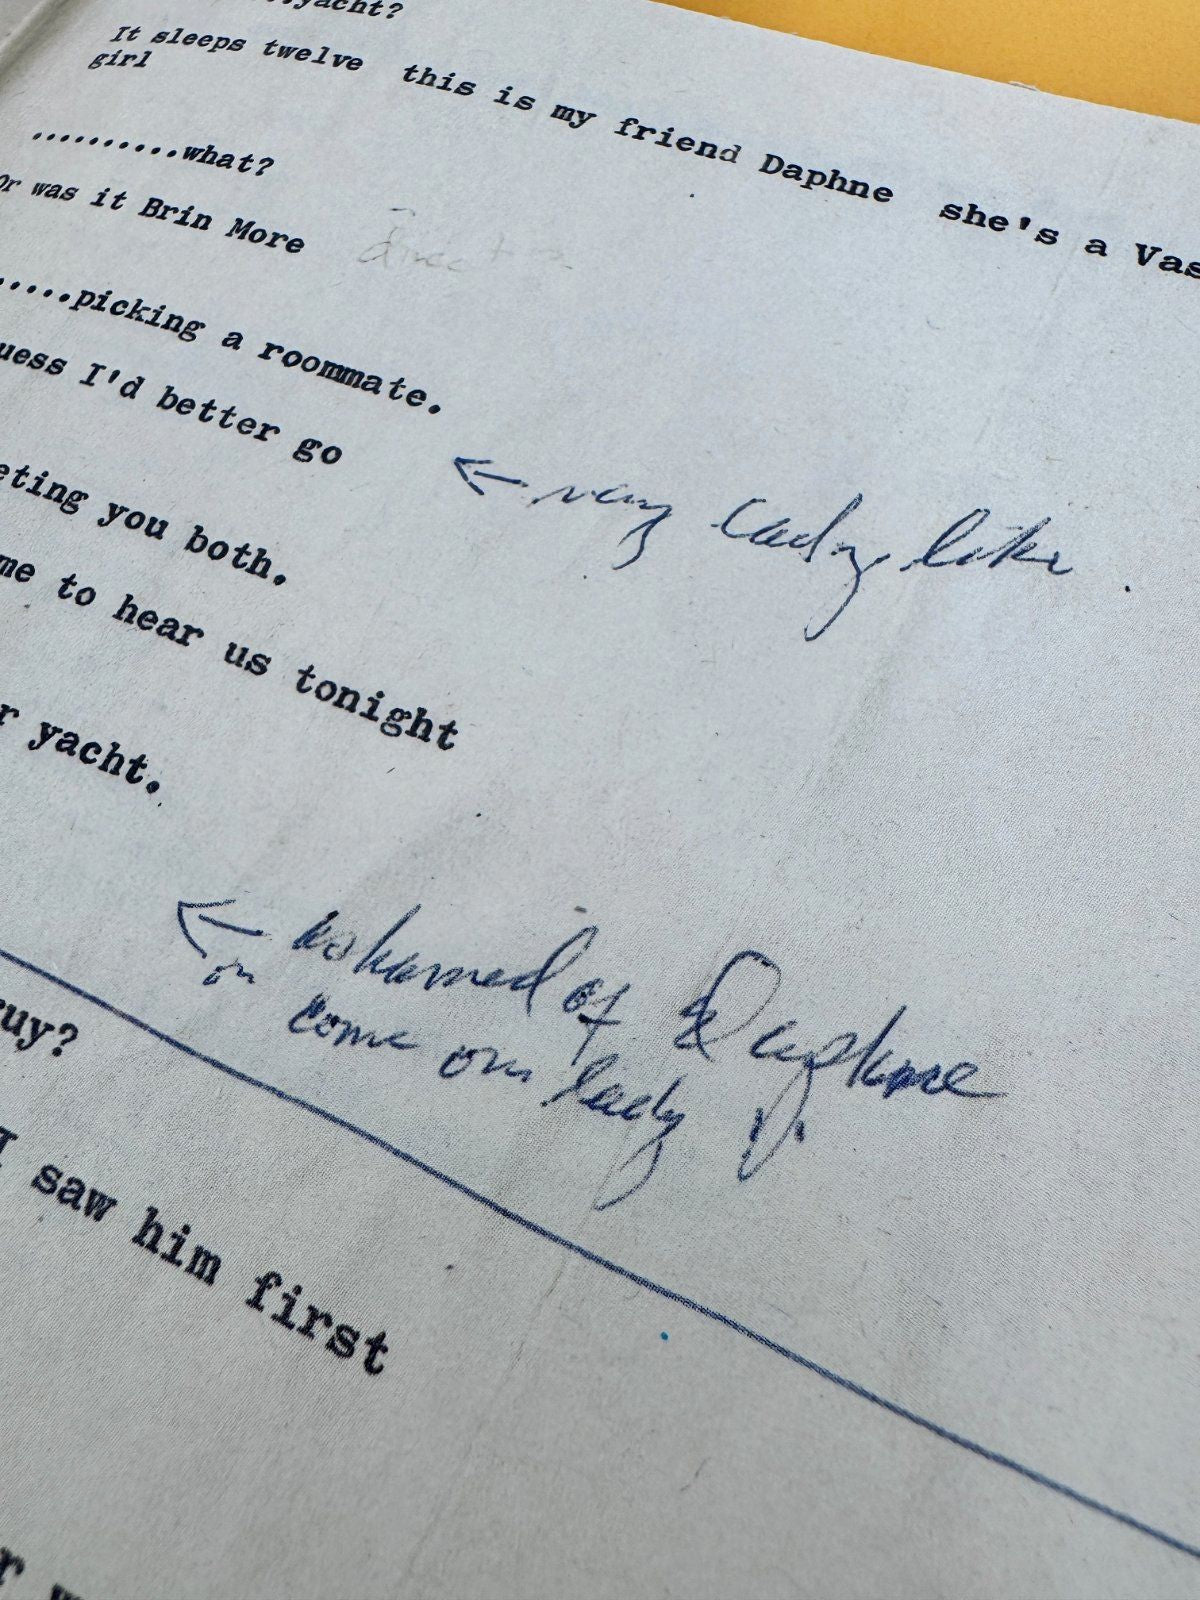 yacht?
It sleeps twelve this is my friend Daphne she's a Vas
girl
..........what?
Or was it Brin More
.....picking a roommate.
uess I'd better go
← very lady like.
eting you both.
me to hear us tonight
r yacht.
← ashamed of Daphne
on come on lady
uy?
I saw him first